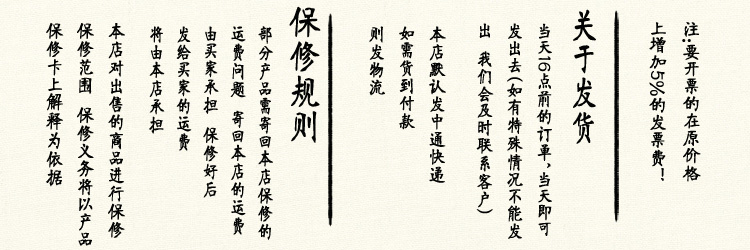 注:要开票的在原价格
上增加5%的发票费!
关于发货
当天16点前的订单,当天即可
发出去(如有特殊情况不能发
出 我们会及时联系客户)
本店默认发中通快递
如需货到付款
则发物流
保修规则
部分产品需寄回本店保修的
运费问题 寄回本店的运费
由买家承担 保修好后
发给买家的运费
将由本店承担
本店对出售的商品进行保修
保修范围 保修义务将以产品
保修卡上解释为依据